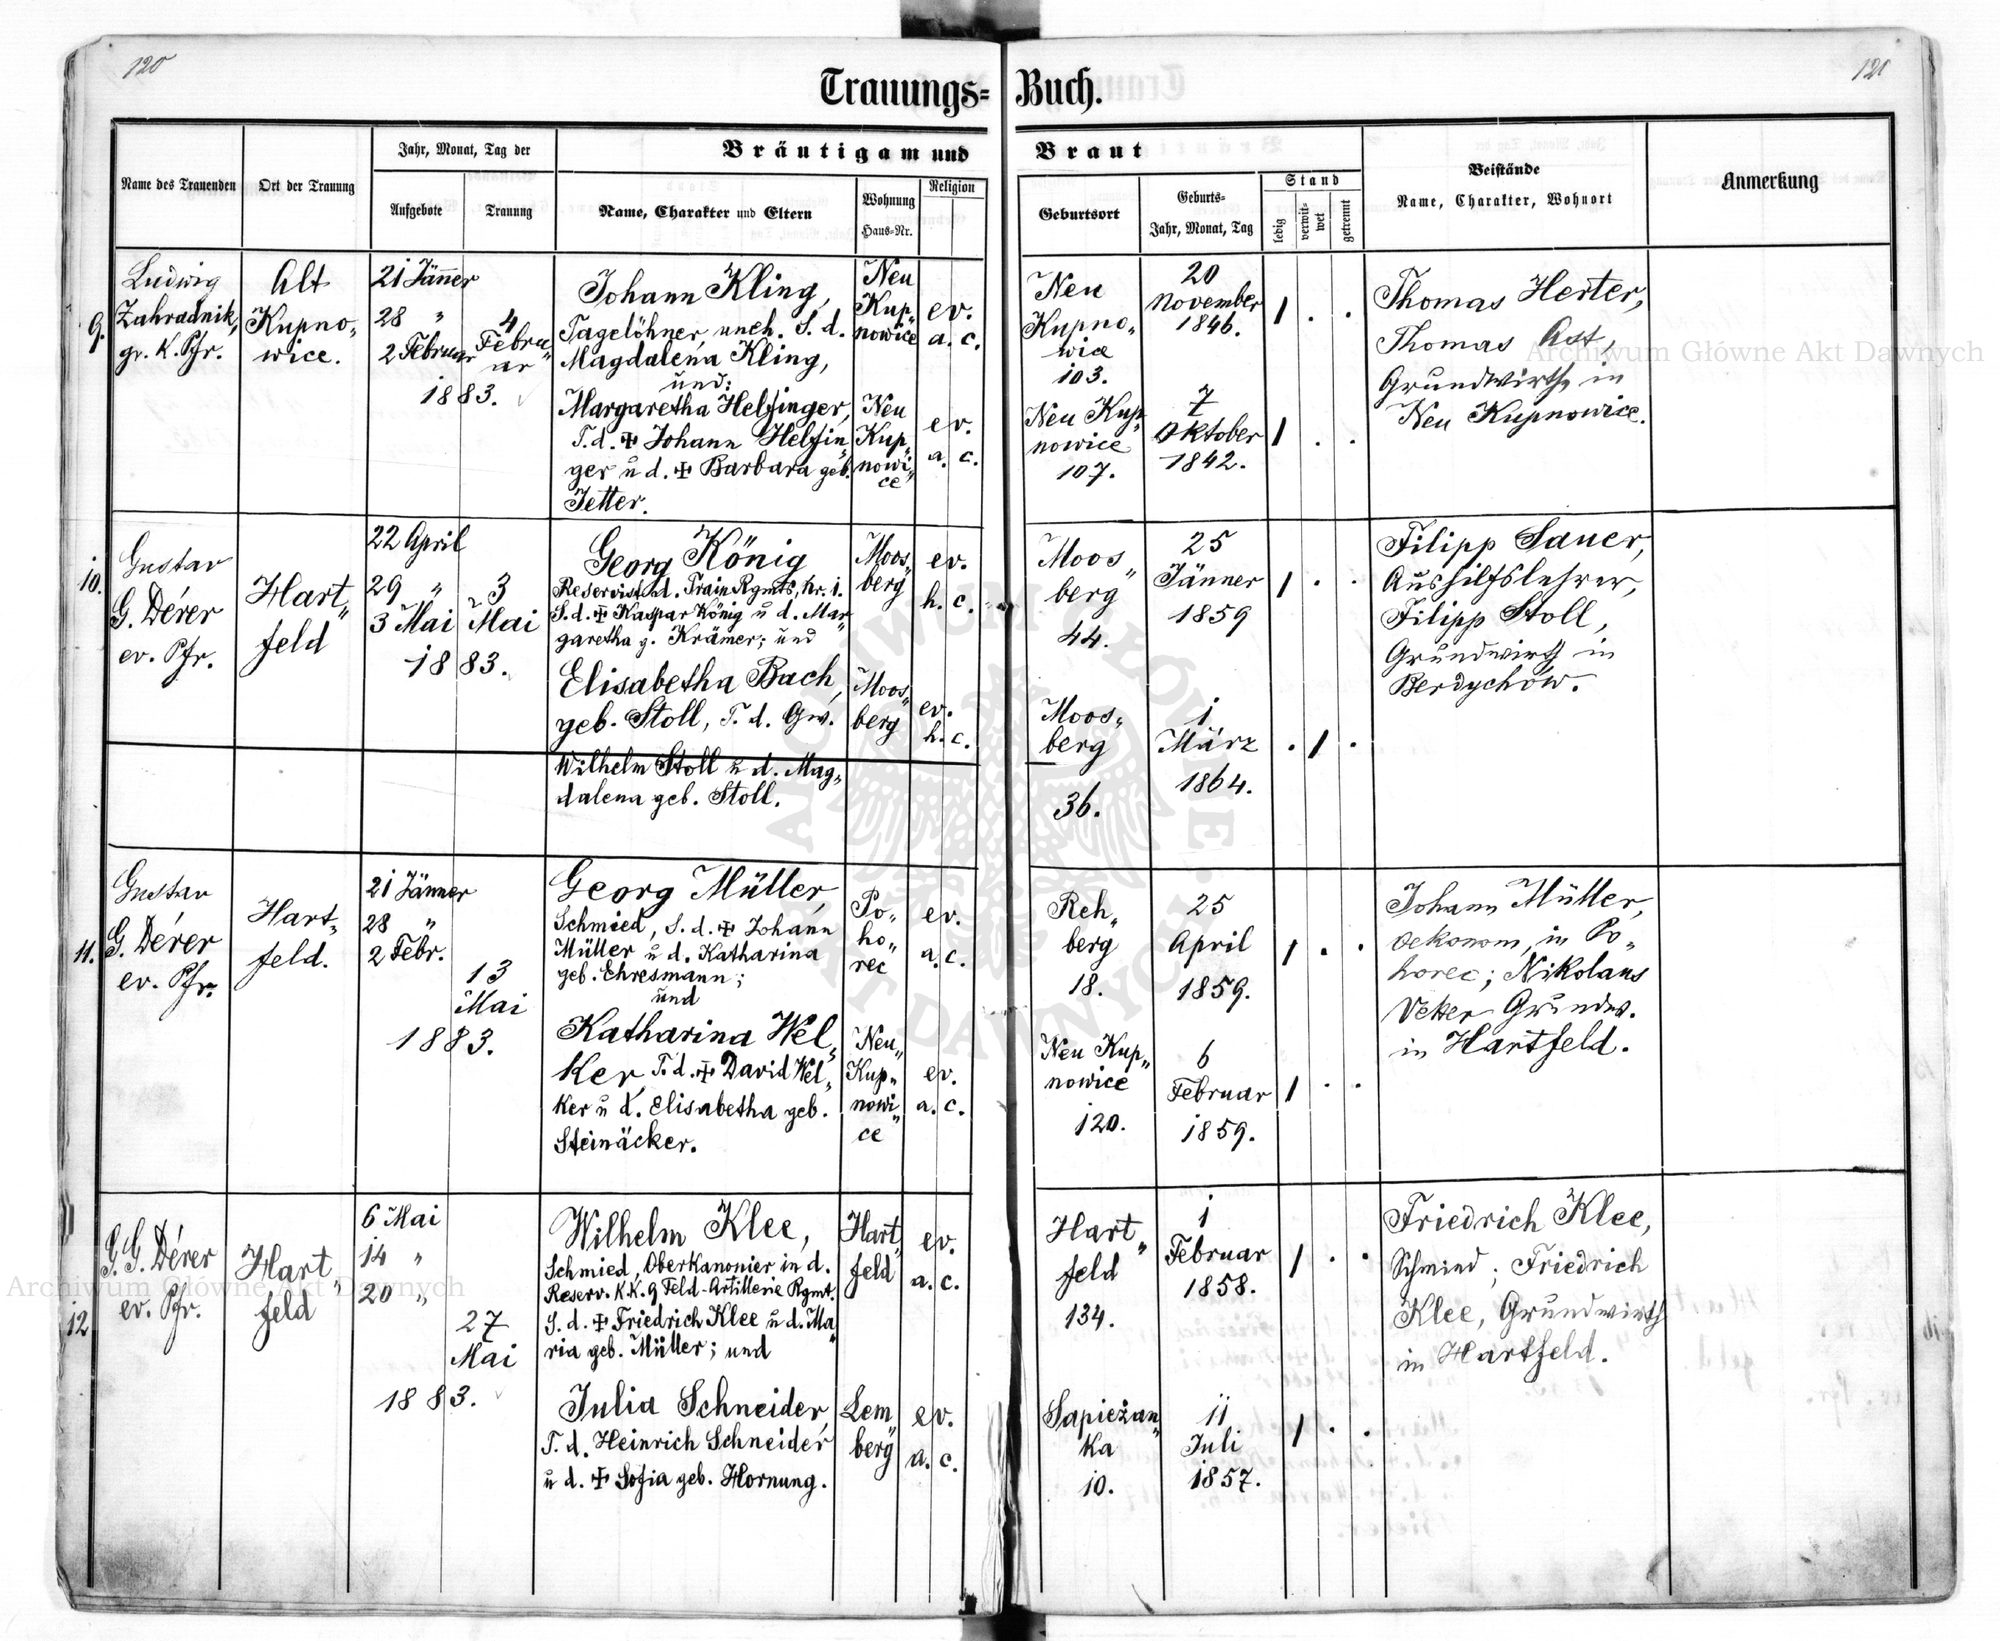 120
121
Trauungs= Buch.
Name des Trauenden
Ort der Trauung
Jahr, Monat, Tag der
Aufgebote
Trauung
Bräutigam und Braut
Name, Charakter und Eltern
Wohnung
Haus=Nr.
Religion
Geburtsort
Geburts=
Jahr, Monat, Tag
Stand
ledig
verwit=
wet
getrennt
Beistände
Name, Charakter, Wohnort
Anmerkung
9.
Ludwig
Zahradnik,
gr. K. Pfr.
Alt
Kupno„
wice.
21 Jänner
28 „
2 Februar
4
Febru„
ar
1883.
Johann Kling,
Tagelöhner, uneh. S. d.
Magdalena Kling,
und:
Margaretha Helfinger,
T. d. ✠ Johann Helfin„
ger u d. ✠ Barbara geb.
Jetter.
Neu
Kup„
nowice
ev.
a. c.
Neu
Kup„
nowi„
ce
ev.
a. c.
Neu
Kupno„
wice
103.
20
November
1846.
1 . .
Neu Kup„
nowice
107.
7
Oktober
1842.
1 . .
Thomas Herter,
Thomas Ast,
Grundwirthe in
Neu Kupnowice.
10.
Gustav
G. Dérer
ev. Pfr.
Hart„
feld
22 April
29 „
3 Mai
3
Mai
1883.
Georg König
Reservist d. Train Rgmts, Nr. 1.
S. d. ✠ Kaspar König u d. Mar„
garetha g. Krämer; und
Elisabetha Bach,
geb. Stoll, T. d. Gw.
Wilhelm Stoll u d. Mag„
dalena geb. Stoll.
Moos„
berg
ev.
h. c.
Moos„
berg
ev.
h. c.
Moos„
berg
44.
25
Jänner
1859
1 . .
Moos„
berg
36.
1
März
1864.
. 1 .
Filipp Sauer,
Aushilfslehrer,
Filipp Stoll,
Grundwirth in
Berdychów.
11.
Gustav
G. Dérer
ev. Pfr.
Hart„
feld.
21 Jänner
28 „
2 Febr.
13
Mai
1883.
Georg Müller,
Schmied, S. d. ✠ Johann
Müller u d. Katharina
geb. Ehresmann;
und
Katharina Wel„
ker, T. d. ✠ David Wel„
ker u d. Elisabetha geb.
Steinäcker.
Po„
ho„
rec
ev.
a. c.
Neu„
Kup„
nowi„
ce
ev.
a. c.
Reh„
berg
18.
25
April
1859.
1 . .
Neu Kup„
nowice
120.
6
Februar
1859.
1 . .
Johann Müller,
Oekonom, in Po„
horec; Nikolaus
Vetter Grundw.
in Hartfeld.
12
G. G. Dérer
ev. Pfr.
Hart„
feld
6 Mai
14 „
20 „
27
Mai
1883.
Wilhelm Klee,
Schmied, Oberkanonier in d.
Reserv. K.K. 9 Feld-Artillerie Rgmt.
S. d. ✠ Friedrich Klee u d. Ma„
ria geb. Müller; und
Julia Schneider,
T. d. Heinrich Schneider
u d. ✠ Sofia geb. Hornung.
Hart„
feld
ev.
a. c.
Lem„
berg
ev.
a. c.
Hart„
feld
134.
1
Februar
1858.
1 . .
Sapiežan„
ka
10.
11
Juli
1857.
1 . .
Friedrich Klee,
Schmied; Friedrich
Klee, Grundwirth
in Hartfeld.
Archiwum Główne Akt Dawnych
Archiwum Główne Akt Dawnych
ARCHIWUM GŁÓWNE AKT DAWNYCH